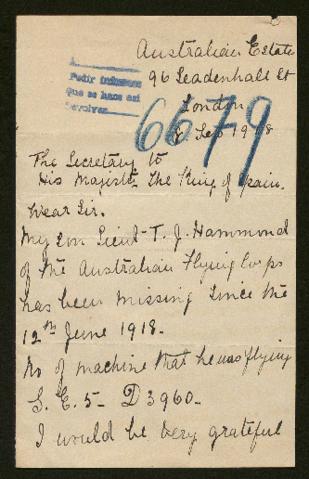 Australian Estate
96 Leadenhall St
London
Sep 1918
A
Pedir informes
Que se hace así
Devolver
6679
The Secretary to
His Majesty The King of Spain.
Dear Sir.
My son Lieut- T. J. Hammond
of the Australian Flying Corps
has been missing since the
12th June 1918.
No of machine that he was flying
S. E. 5- D3960-
I would be very grateful